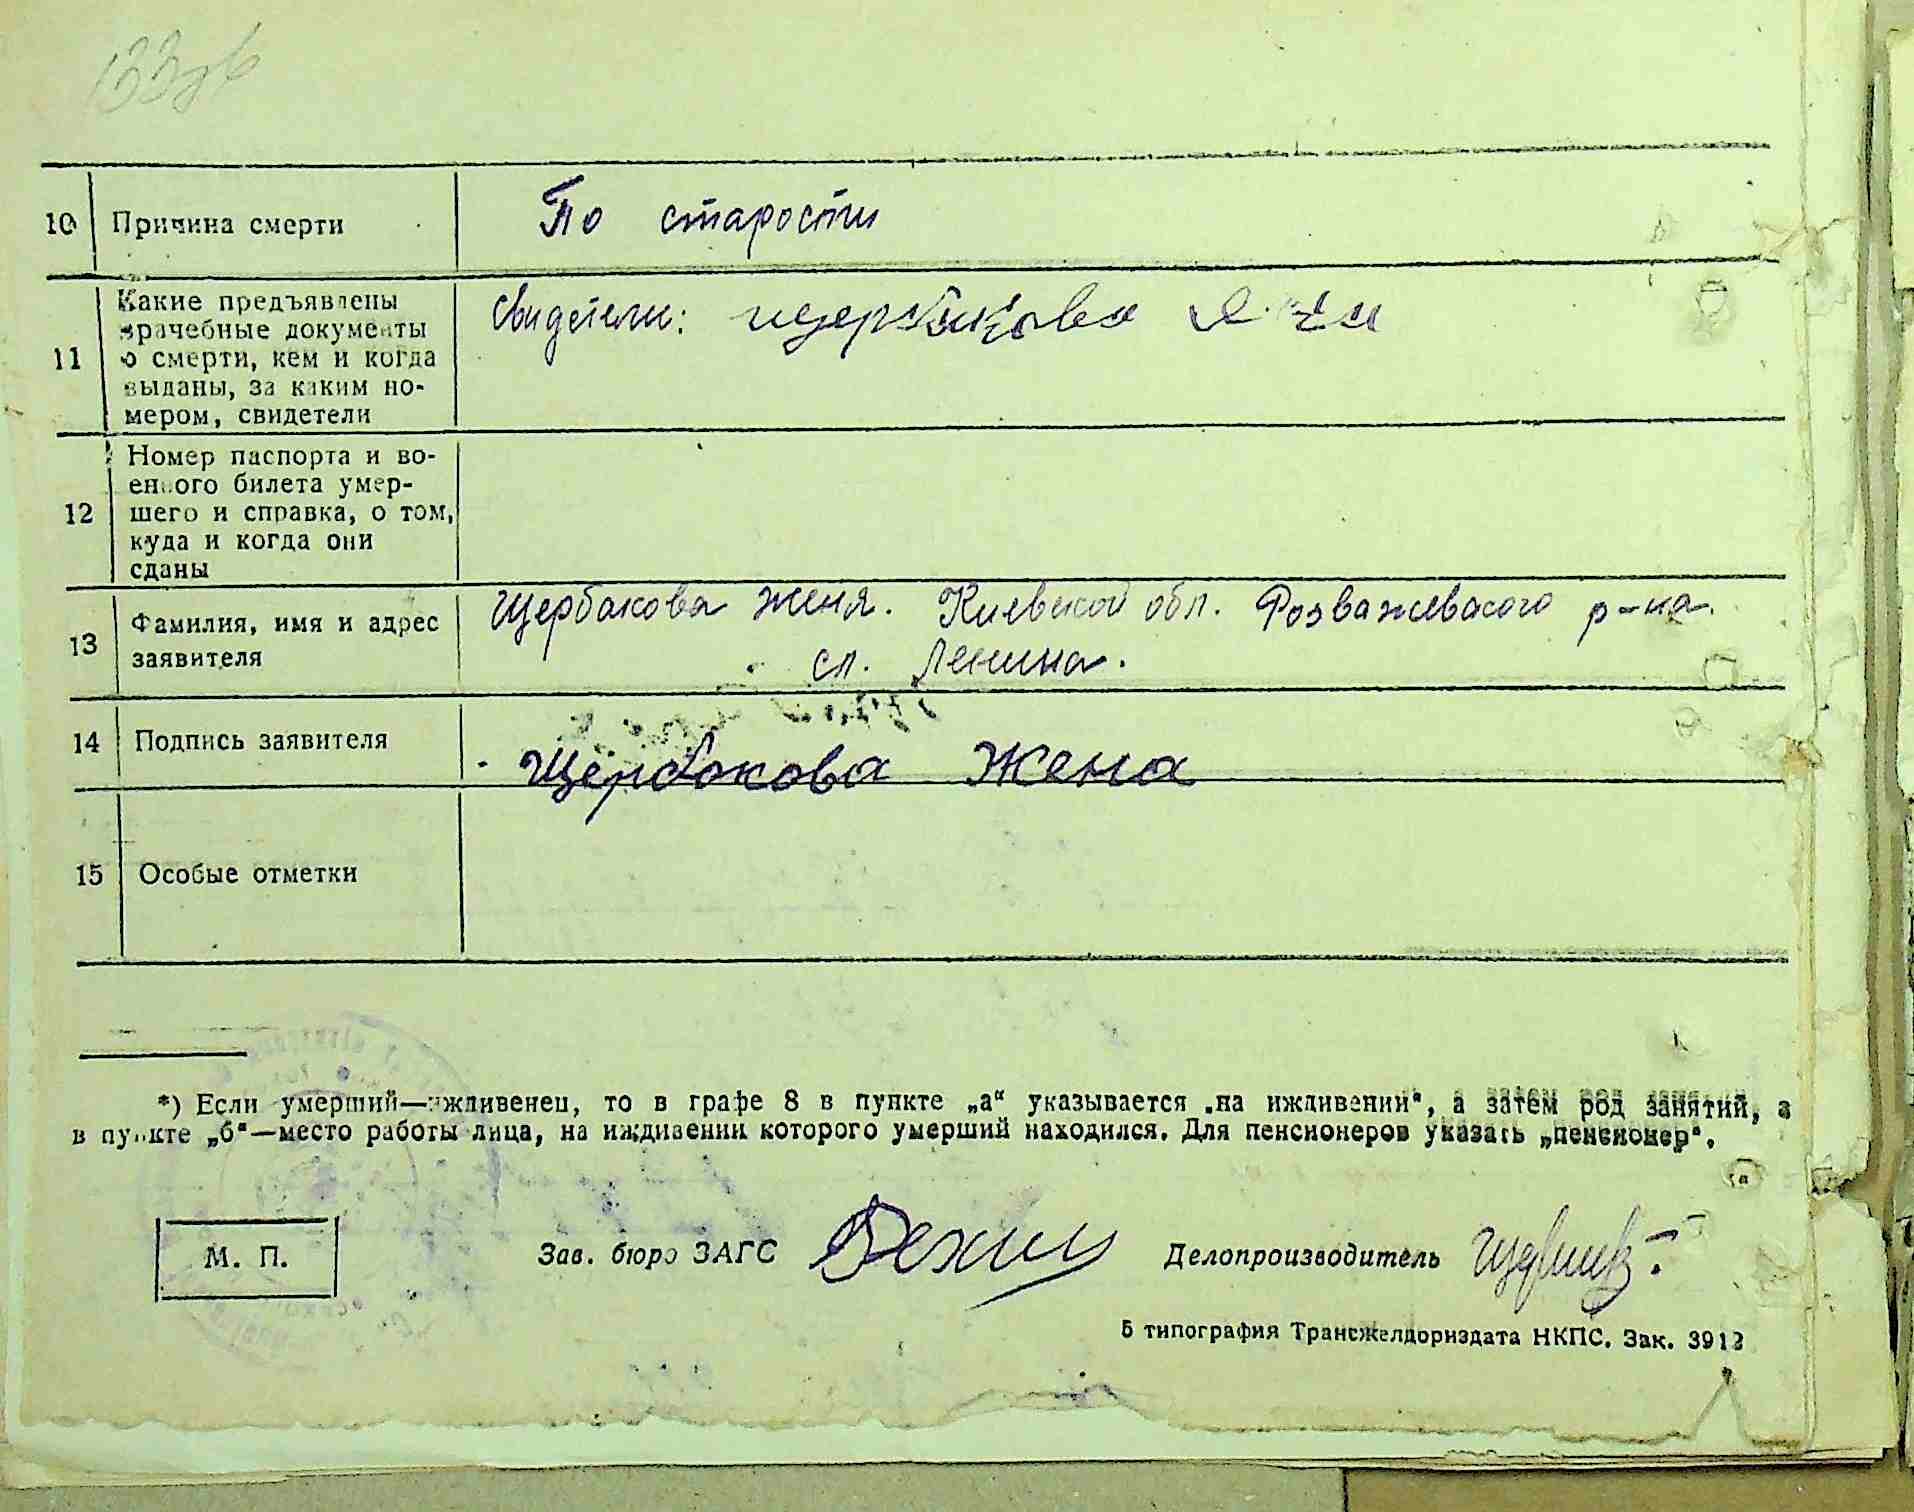 133
10 Причина смерти По старости
11 Какие предъявлены
врачебные документы
о смерти, кем и когда
выданы, за каким но-
мером, свидетели
Свидетели:
12 Номер паспорта и во-
енного билета умер-
шего и справка, о том,
куда и когда они
сданы
13 Фамилия, имя и адрес
заявителя
Щербакова Женя. Киевской обл. Розважевского р-на.
сл. Ленина.
14 Подпись заявителя Щербакова Жена
15 Особые отметки
*) Если умерший—иждивенец, то в графе 8 в пункте „а“ указывается „на иждивении“, а затем род занятий, а
в пункте „б“—место работы лица, на иждивении которого умерший находился. Для пенсионеров указать „пенсионер“.
М. П. Зав. бюро ЗАГС Делопроизводитель
5 типография Трансжелдориздата НКПС. Зак. 3913